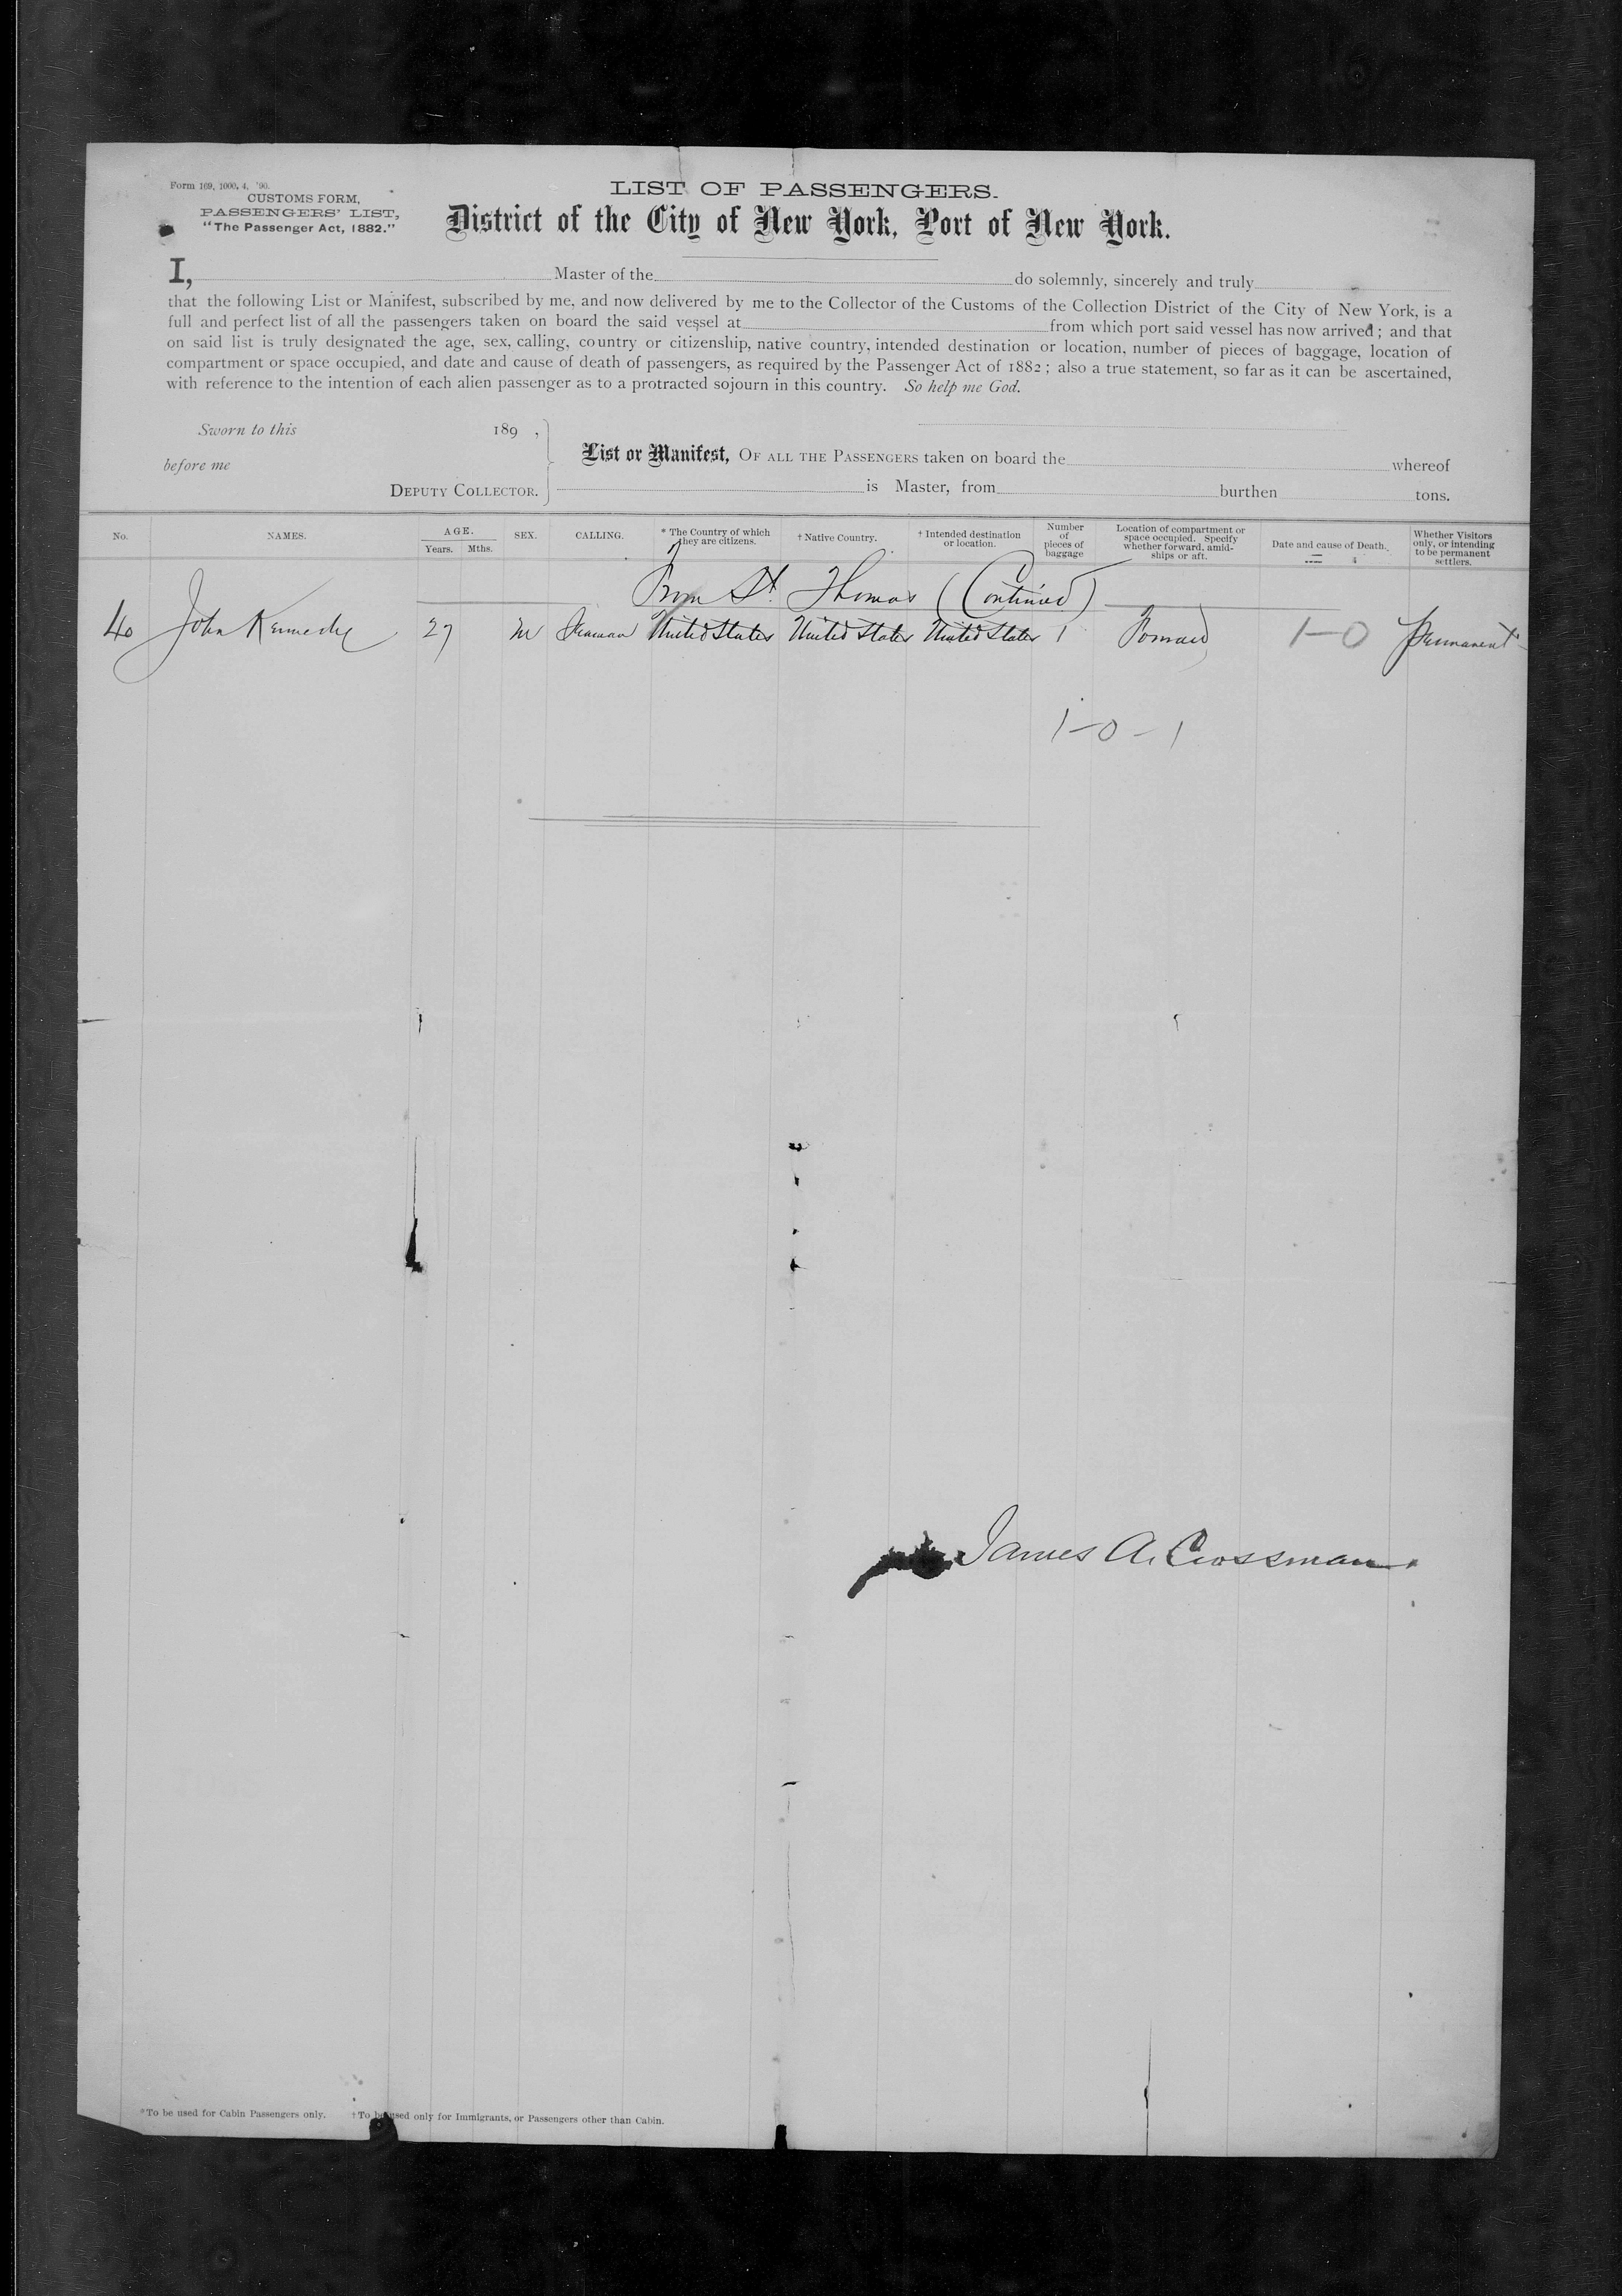 Form 169, 1000, 4, '90.
CUSTOMS FORM,
PASSENGERS' LIST,
"The Passenger Act, 1882."
LIST OF PASSENGERS.
District of the City of New York, Port of New York.
I, Master of the do solemnly, sincerely and truly
that the following List or Manifest, subscribed by me, and now delivered by me to the Collector of the Customs of the Collection District of the City of New York, is a
full and perfect list of all the passengers taken on board the said vessel at from which port said vessel has now arrived; and that
on said list is truly designated the age, sex, calling, country or citizenship, native country, intended destination or location, number of pieces of baggage, location of
compartment or space occupied, and date and cause of death of passengers, as required by the Passenger Act of 1882; also a true statement, so far as it can be ascertained,
with reference to the intention of each alien passenger as to a protracted sojourn in this country. So help me God.
Sworn to this 189 ,
before me
DEPUTY COLLECTOR.
List or Manifest, OF ALL THE PASSENGERS taken on board the whereof
is Master, from burthen tons.
No. NAMES. AGE. Years. Mths. SEX. CALLING. * The Country of which they are citizens. † Native Country. † Intended destination or location. Number of pieces of baggage Location of compartment or space occupied. Specify whether forward, amidships or aft. Date and cause of Death. Whether Visitors only, or intending to be permanent settlers.
From St. Thomas (Continued)
40 John Kennedy 27 M Seaman United States United States United States 1 Forward 1-0 Permanent
1-0-1
James A. Crossman
*To be used for Cabin Passengers only. †To be used only for Immigrants, or Passengers other than Cabin.